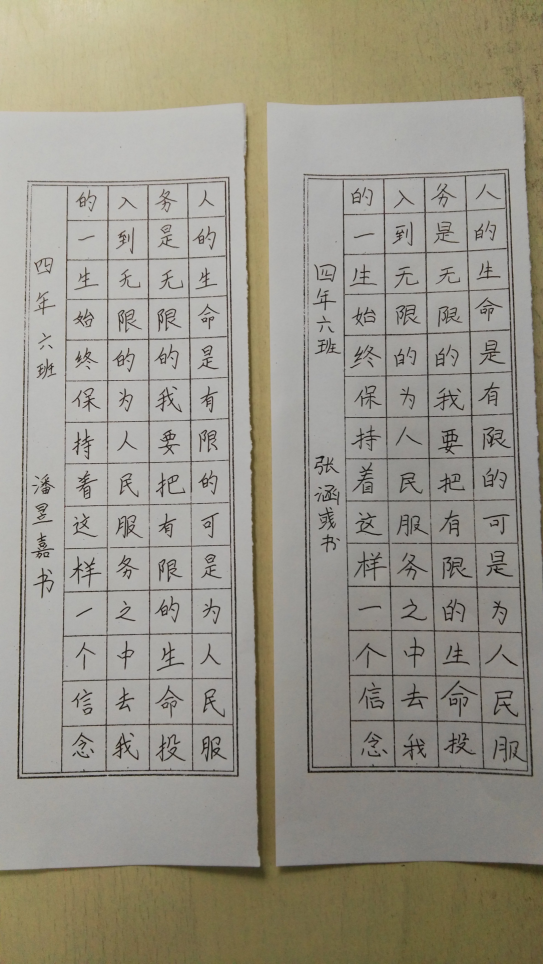 人的生命是有限的可是为人民服
务是无限的我要把有限的生命投
入到无限的为人民服务之中去我
的一生始终保持着这样一个信念
四年六班 潘昱嘉书
人的生命是有限的可是为人民服
务是无限的我要把有限的生命投
入到无限的为人民服务之中去我
的一生始终保持着这样一个信念
四年六班 张涵彧书